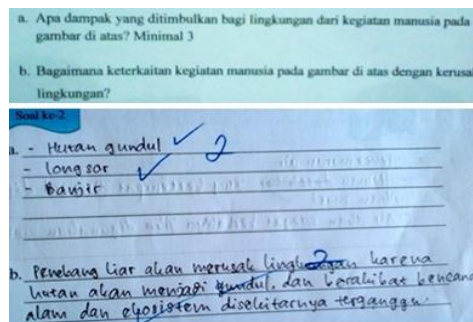 a. Apa dampak yang ditimbulkan bagi lingkungan dari kegiatan manusia pada
gambar di atas? Minimal 3
b. Bagaimana keterkaitan kegiatan manusia pada gambar di atas dengan kerusa
lingkungan?
Soal ke-2
a. - Hutan gundul
2
- longsor
- Banjir
2
b. Penebang liar akan merusak lingkungan karena
hutan akan menjadi gundul, dan berakibat bencana
alam dan ekosistem disekitarnya terganggu.